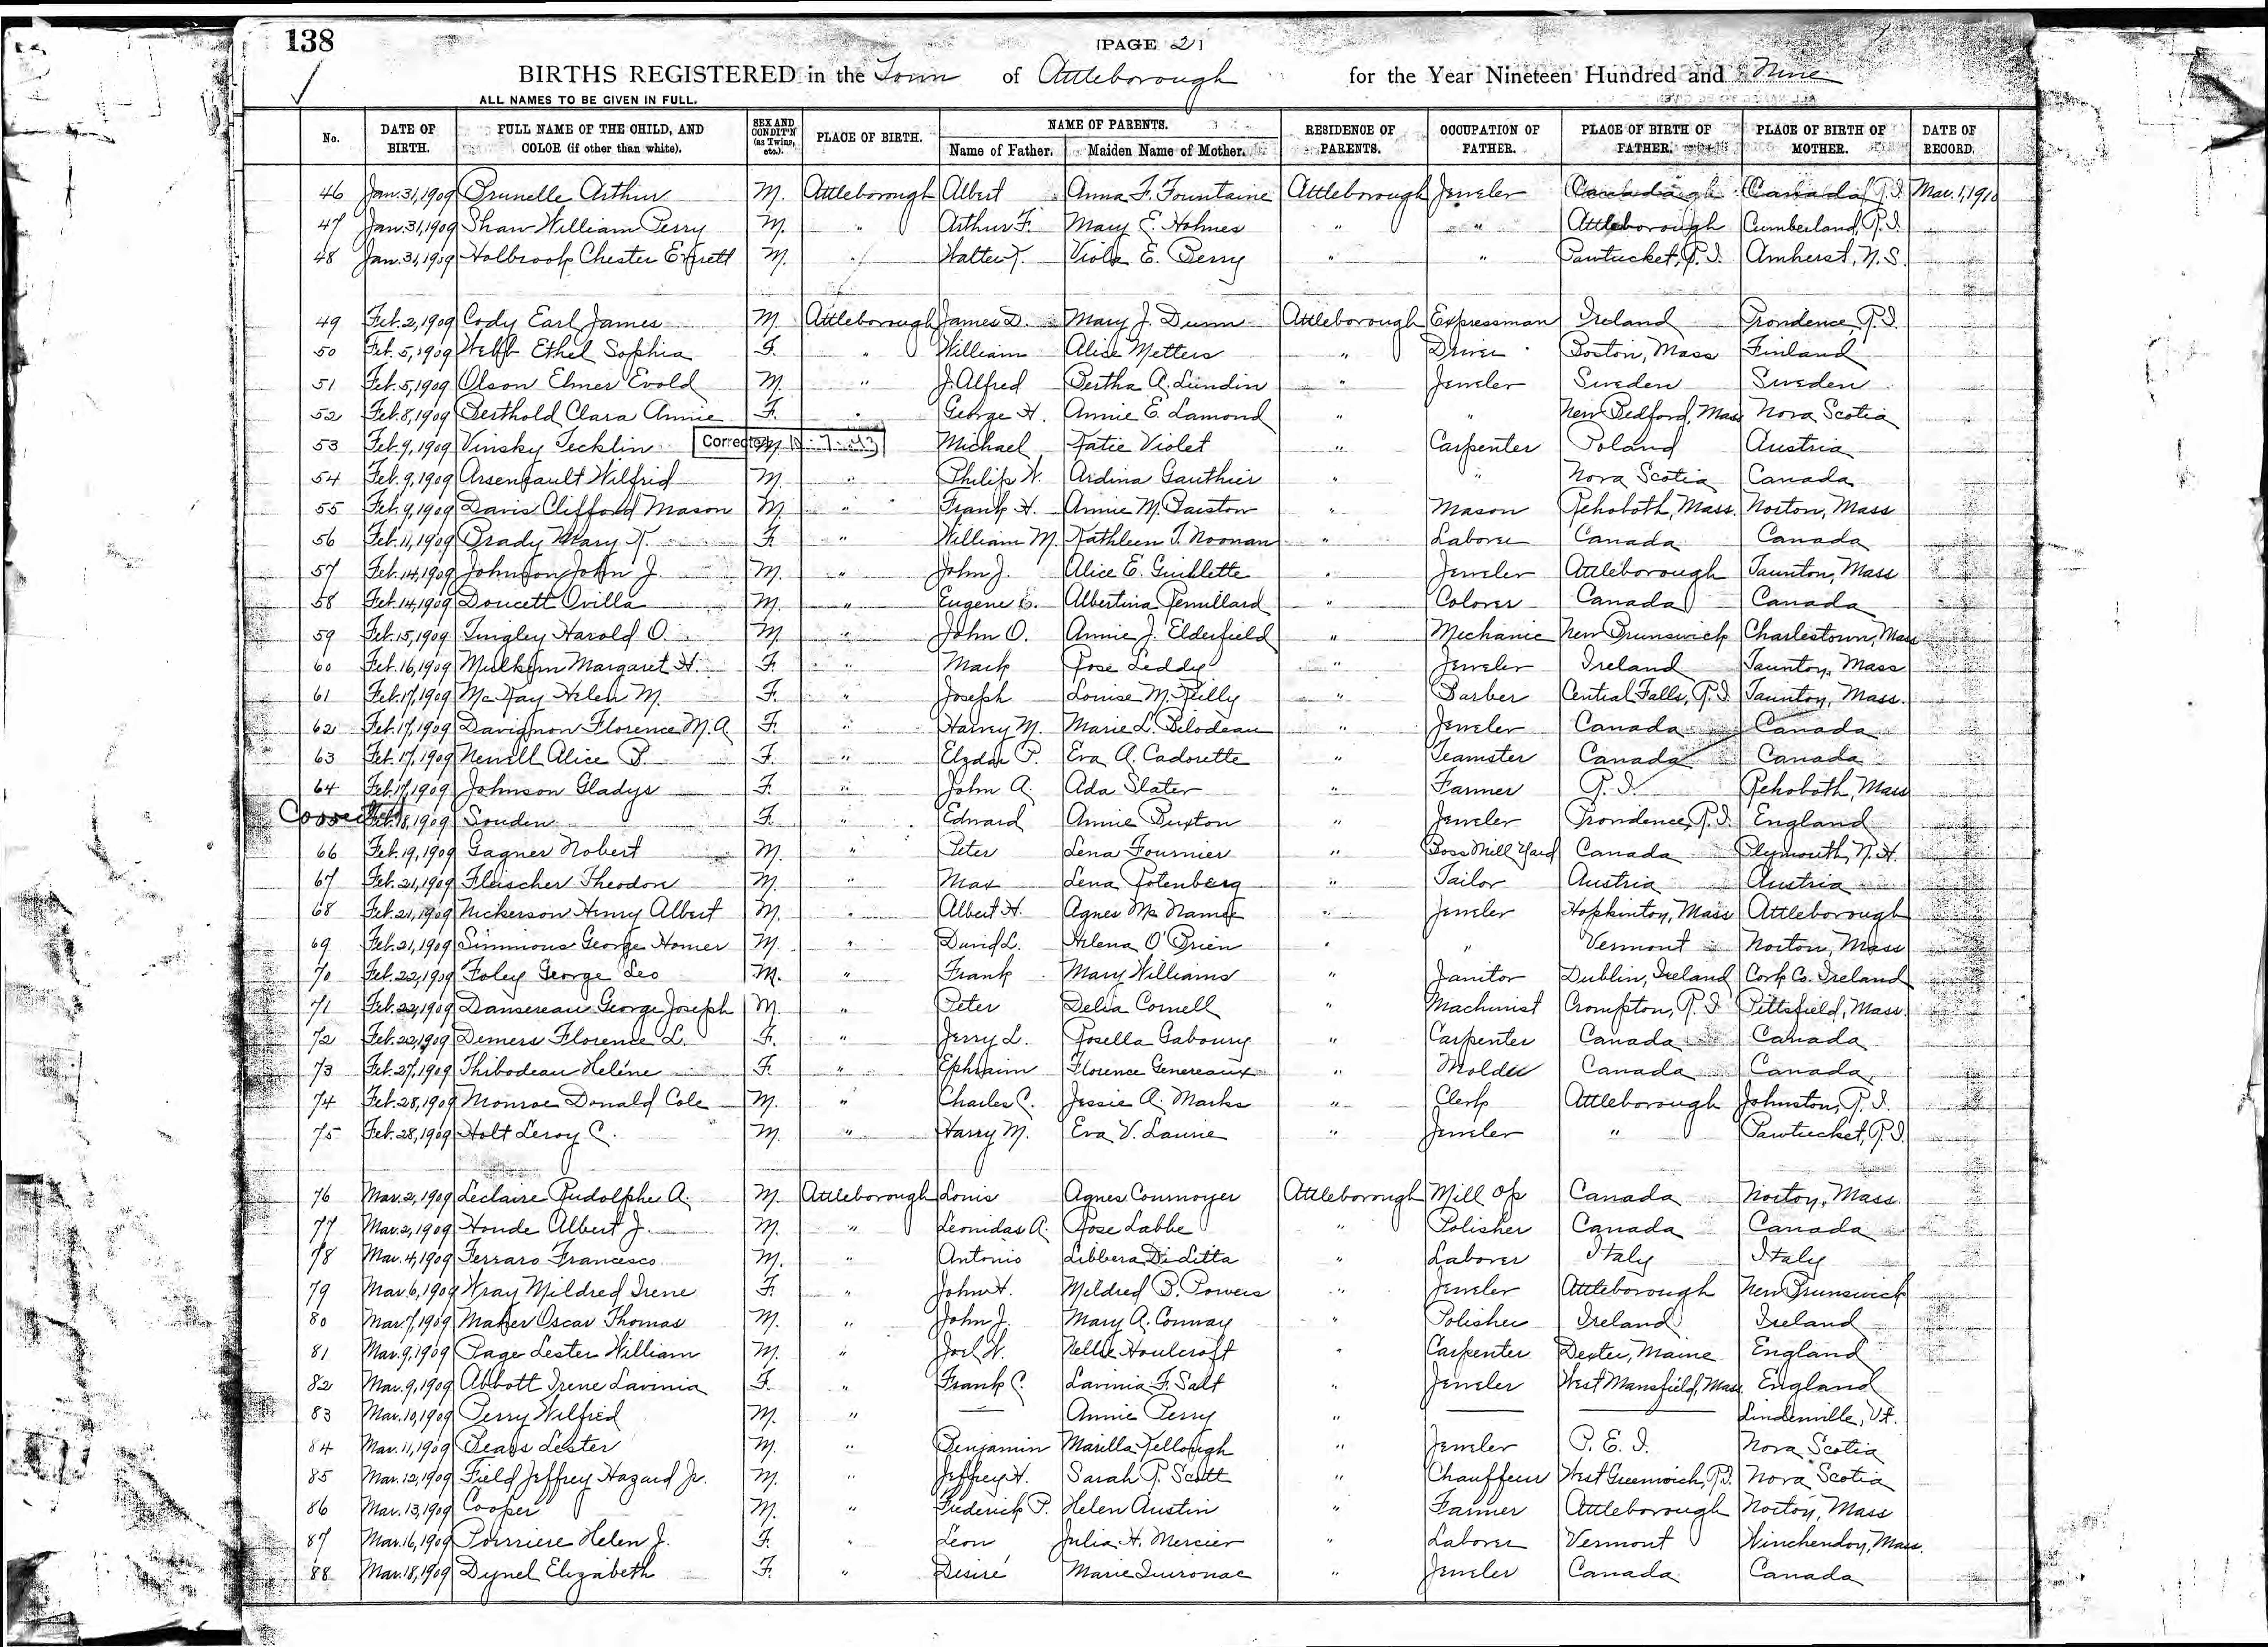 138
[PAGE 2]
BIRTHS REGISTERED in the Town of Attleborough for the Year Nineteen Hundred and Nine
ALL NAMES TO BE GIVEN IN FULL.
No. DATE OF BIRTH. FULL NAME OF THE CHILD, AND COLOR (if other than white). SEX AND CONDIT'N (as Twins, etc.). PLACE OF BIRTH. NAME OF PARENTS. Name of Father. Maiden Name of Mother. RESIDENCE OF PARENTS. OCCUPATION OF FATHER. PLACE OF BIRTH OF FATHER. PLACE OF BIRTH OF MOTHER. DATE OF RECORD.
46 Jan. 31, 1909 Brunelle Arthur M. Attleborough Albert Anna F. Fountaine Attleborough Jeweler Canada Canada Mar. 1, 1910
47 Jan. 31, 1909 Shaw William Perry M. " Arthur F. Mary E. Holmes " " Attleborough Cumberland, R.I.
48 Jan. 31, 1909 Holbrook Chester Everett M. " Walter T. Viola E. Berry " " Pawtucket, R.I. Amherst, N.S.
49 Feb. 2, 1909 Cody Earl James M. Attleborough James D. Mary J. Dunn Attleborough Expressman Ireland Providence, R.I.
50 Feb. 5, 1909 Webb Ethel Sophia F. " William Alice Metters " Driver Boston, Mass Finland
51 Feb. 5, 1909 Olson Elmer Evold M. " J. Alfred Bertha A. Lundin " Jeweler Sweden Sweden
52 Feb. 8, 1909 Berthold Clara Annie F. " George H. Annie E. Lamond " " New Bedford, Mass Nova Scotia
53 Feb. 9, 1909 Vinsky Tecklin Corrected 10-7-43 M. Michael Katie Violet " Carpenter Poland Austria
54 Feb. 9, 1909 Arsenault Wilfrid M. " Philip W. Ardina Gauthier " " Nova Scotia Canada
55 Feb. 9, 1909 Davis Clifford Mason M. " Frank H. Annie M. Barstow " Mason Rehoboth, Mass. Norton, Mass
56 Feb. 11, 1909 Brady Mary K. F. " William M. Kathleen T. Noonan " Laborer Canada Canada
57 Feb. 14, 1909 Johnson John J. M. " John J. Alice E. Guillette " Jeweler Attleborough Taunton, Mass
58 Feb. 14, 1909 Doucett Ovilla M. " Eugene Albertina Remillard " Colorer Canada Canada
59 Feb. 15, 1909 Tingley Harold O. M. " John O. Annie J. Elderfield " Mechanic New Brunswick Charlestown, Mass
60 Feb. 16, 1909 Mulkern Margaret H. F. " Mark Rose Leddy " Jeweler Ireland Taunton, Mass
61 Feb. 17, 1909 McKay Helen M. F. " Joseph Louise M. Reilly " Barber Central Falls, R.I. Taunton, Mass.
62 Feb. 17, 1909 Davignon Florence M. A. F. " Harvey M. Marie L. Bilodeau " Jeweler Canada Canada
63 Feb. 17, 1909 Newell Alice B. F. " Elzdor P. Eva A. Cadorette " Teamster Canada Canada
64 Feb. 17, 1909 Johnson Gladys F. " John A. Ada Slater " Farmer R.I. Rehoboth, Mass
Corrected Feb. 18, 1909 Souden F. " Edward Annie Buxton " Jeweler Providence, R.I. England
66 Feb. 19, 1909 Gagner Nobert M. " Peter Lena Fournier " Boss Mill Yard Canada Plymouth, N.H.
67 Feb. 21, 1909 Fleischer Theodon M. " Max Lena Rotenberg " Tailor Austria Austria
68 Feb. 21, 1909 Nickerson Henry Albert M. " Albert H. Agnes McNamee " Jeweler Hopkinton, Mass Attleborough
69 Feb. 21, 1909 Simmons George Homer M. " David L. Helena O'Brien " " Vermont Norton, Mass
70 Feb. 22, 1909 Foley George Leo M. " Frank Mary Williams " Janitor Dublin, Ireland Cork Co. Ireland
71 Feb. 22, 1909 Dansereau George Joseph M. " Peter Delia Cornell " Machinist Crompton, R.I. Pittsfield, Mass.
72 Feb. 22, 1909 Demers Florence L. F. " Jerry L. Rosella Gaboury " Carpenter Canada Canada
73 Feb. 27, 1909 Thibodeau Heléne F. " Ephraim Florence Genereaux " Molder Canada Canada
74 Feb. 28, 1909 Monroe Donald Cole M. " Charles C. Jessie A. Marks " Clerk Attleborough Johnston, R.I.
75 Feb. 28, 1909 Holt Leroy C. M. " Harry M. Eva V. Laurie " Jeweler " Pawtucket, R.I.
76 Mar. 2, 1909 Leclaire Rudolphe A. M. Attleborough Louis Agnes Cournoyer Attleborough Mill Op Canada Norton, Mass.
77 Mar. 2, 1909 Houde Albert J. M. " Leonidas A. Rose Labbe " Polisher Canada Canada
78 Mar. 4, 1909 Ferraro Francesco M. " Antonio Libbera DiLitta " Laborer Italy Italy
79 Mar. 6, 1909 Wray Mildred Irene F. " John H. Mildred B. Powers " Jeweler Attleborough New Brunswick
80 Mar. 7, 1909 Maher Oscar Thomas M. " John J. Mary A. Conway " Polisher Ireland Ireland
81 Mar. 9, 1909 Page Lester William M. " Joel W. Nellie Houlcroft " Carpenter Dexter, Maine England
82 Mar. 9, 1909 Abbott Irene Lavinia F. " Frank C. Lavinia F. Salt " Jeweler West Mansfield, Mass. England
83 Mar. 10, 1909 Perry Wilfred M. " — Annie Perry " — — Lindenville, Vt.
84 Mar. 11, 1909 Beals Lester M. " Benjamin Marilla Kellough " Jeweler P.E.I. Nova Scotia
85 Mar. 12, 1909 Field Jeffrey Hazard Jr. M. " Jeffrey H. Sarah P. Scott " Chauffeur West Greenwich, R.I. Nova Scotia
86 Mar. 13, 1909 Cooper M. " Frederick P. Helen Austin " Farmer Attleborough Norton, Mass
87 Mar. 16, 1909 Poirriere Helen J. F. " Leon Julia H. Mercier " Laborer Vermont Winchendon, Mass.
88 Mar. 18, 1909 Dynel Elizabeth F. " Desiré Marie Quironac " Jeweler Canada Canada